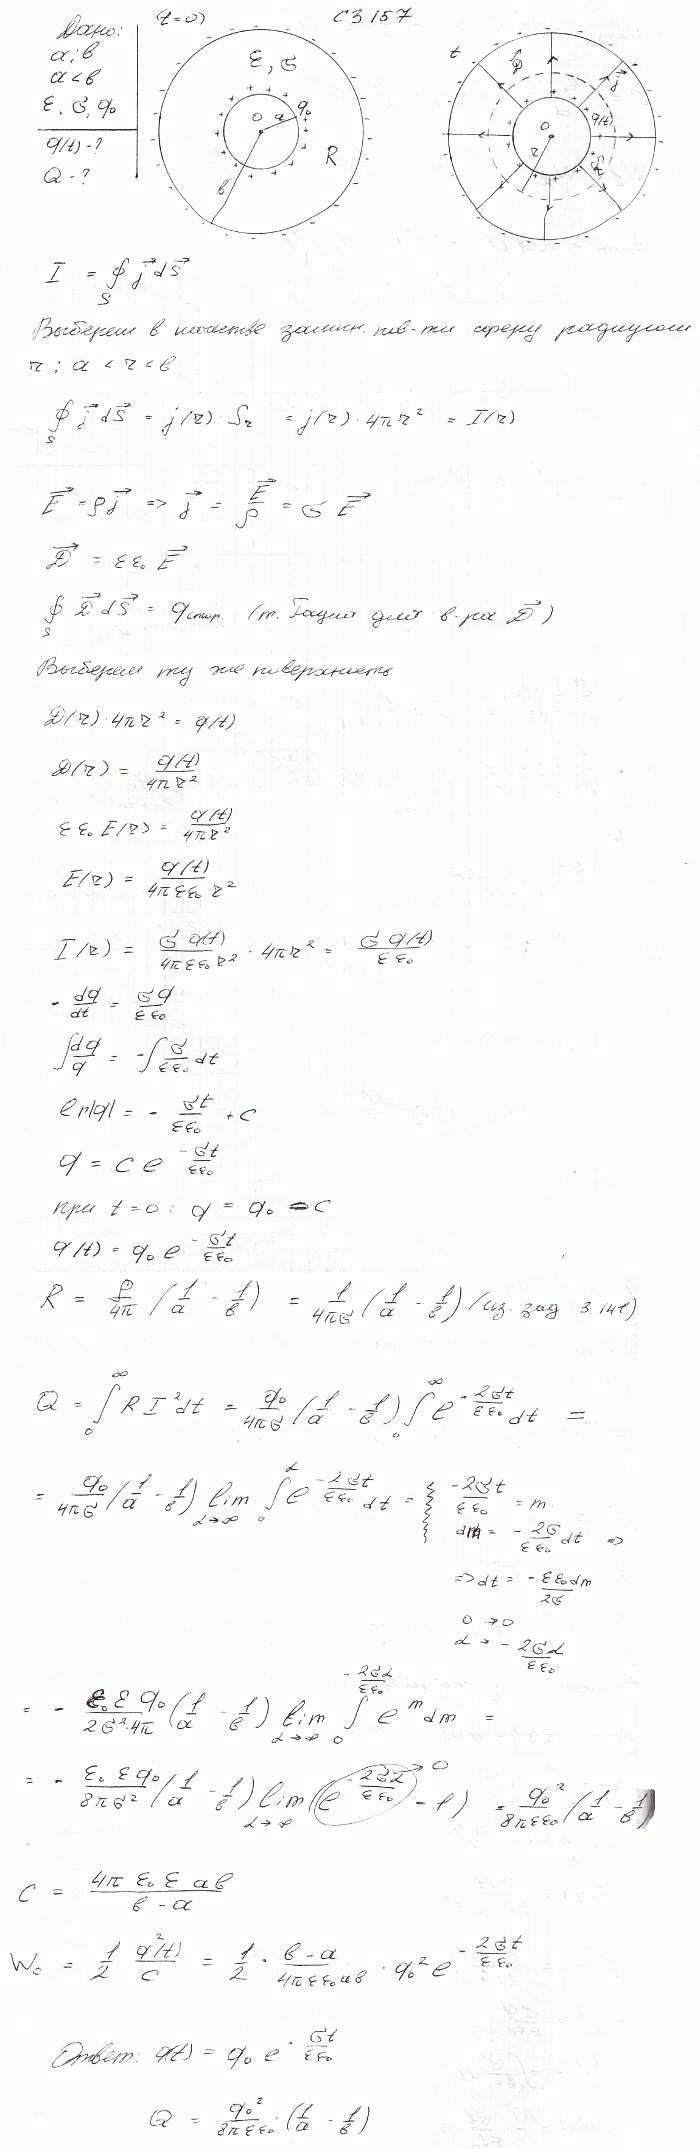 Дано:
a; b
a < b
ε, σ, q₀
q(t) - ?
Q - ?
(t=0)
C3.157
ε, σ
q₀
O a
R
b
t
D⃗
j⃗
q(t)
O
r
S
I = ∮_S j⃗ dS⃗
Выберем в качестве замкн. пов-ти сферу радиусом
r ; a < r < b
∮_S j⃗ dS⃗ = j(r) · S_r = j(r) · 4πr² = I(r)
E⃗ = ρj⃗ => j⃗ = E⃗/ρ = σE⃗
D⃗ = εε₀E⃗
∮_S D⃗ dS⃗ = q стор. (т. Гаусса для в-ра D⃗)
Выберем ту же поверхность
D(r) · 4πr² = q(t)
D(r) = q(t)/4πr²
εε₀E(r) = q(t)/4πr²
E(r) = q(t)/4πεε₀r²
I(r) = σq(t)/4πεε₀r² · 4πr² = σq(t)/εε₀
- dq/dt = σq/εε₀
∫dq/q = -∫σ/εε₀ dt
ln|q| = - σt/εε₀ + C
q = C e^(-σt/εε₀)
при t=0: q = q₀ = C
q(t) = q₀ e^(-σt/εε₀)
R = ρ/4π (1/a - 1/b) = 1/4πσ (1/a - 1/b) (из. зад 3.141)
Q = ∫₀^∞ R I² dt = q₀/4πσ (1/a - 1/b) ∫₀^∞ e^(-2σt/εε₀) dt =
= q₀/4πσ (1/a - 1/b) lim_(α→∞) ∫₀^α e^(-2σt/εε₀) dt = { -2σt/εε₀ = m
dm = - 2σ/εε₀ dt =>
=> dt = - εε₀dm/2σ
0 → 0
α → - 2σα/εε₀
= - ε₀εq₀/2σ²·4π (1/a - 1/b) lim_(α→∞) ∫₀^(-2σα/εε₀) e^m dm =
= - ε₀εq₀/8πσ² (1/a - 1/b) lim_(α→∞) (e^(-2σα/εε₀) → 0 - 1) = q₀²/8πεε₀ (1/a - 1/b)
C = 4πε₀εab/b - a
W_c = 1/2 q²(t)/C = 1/2 · b-a/4πεε₀ab · q₀² e^(-2σt/εε₀)
Ответ: q(t) = q₀ e^(-σt/εε₀)
Q = q₀²/8πεε₀ · (1/a - 1/b)